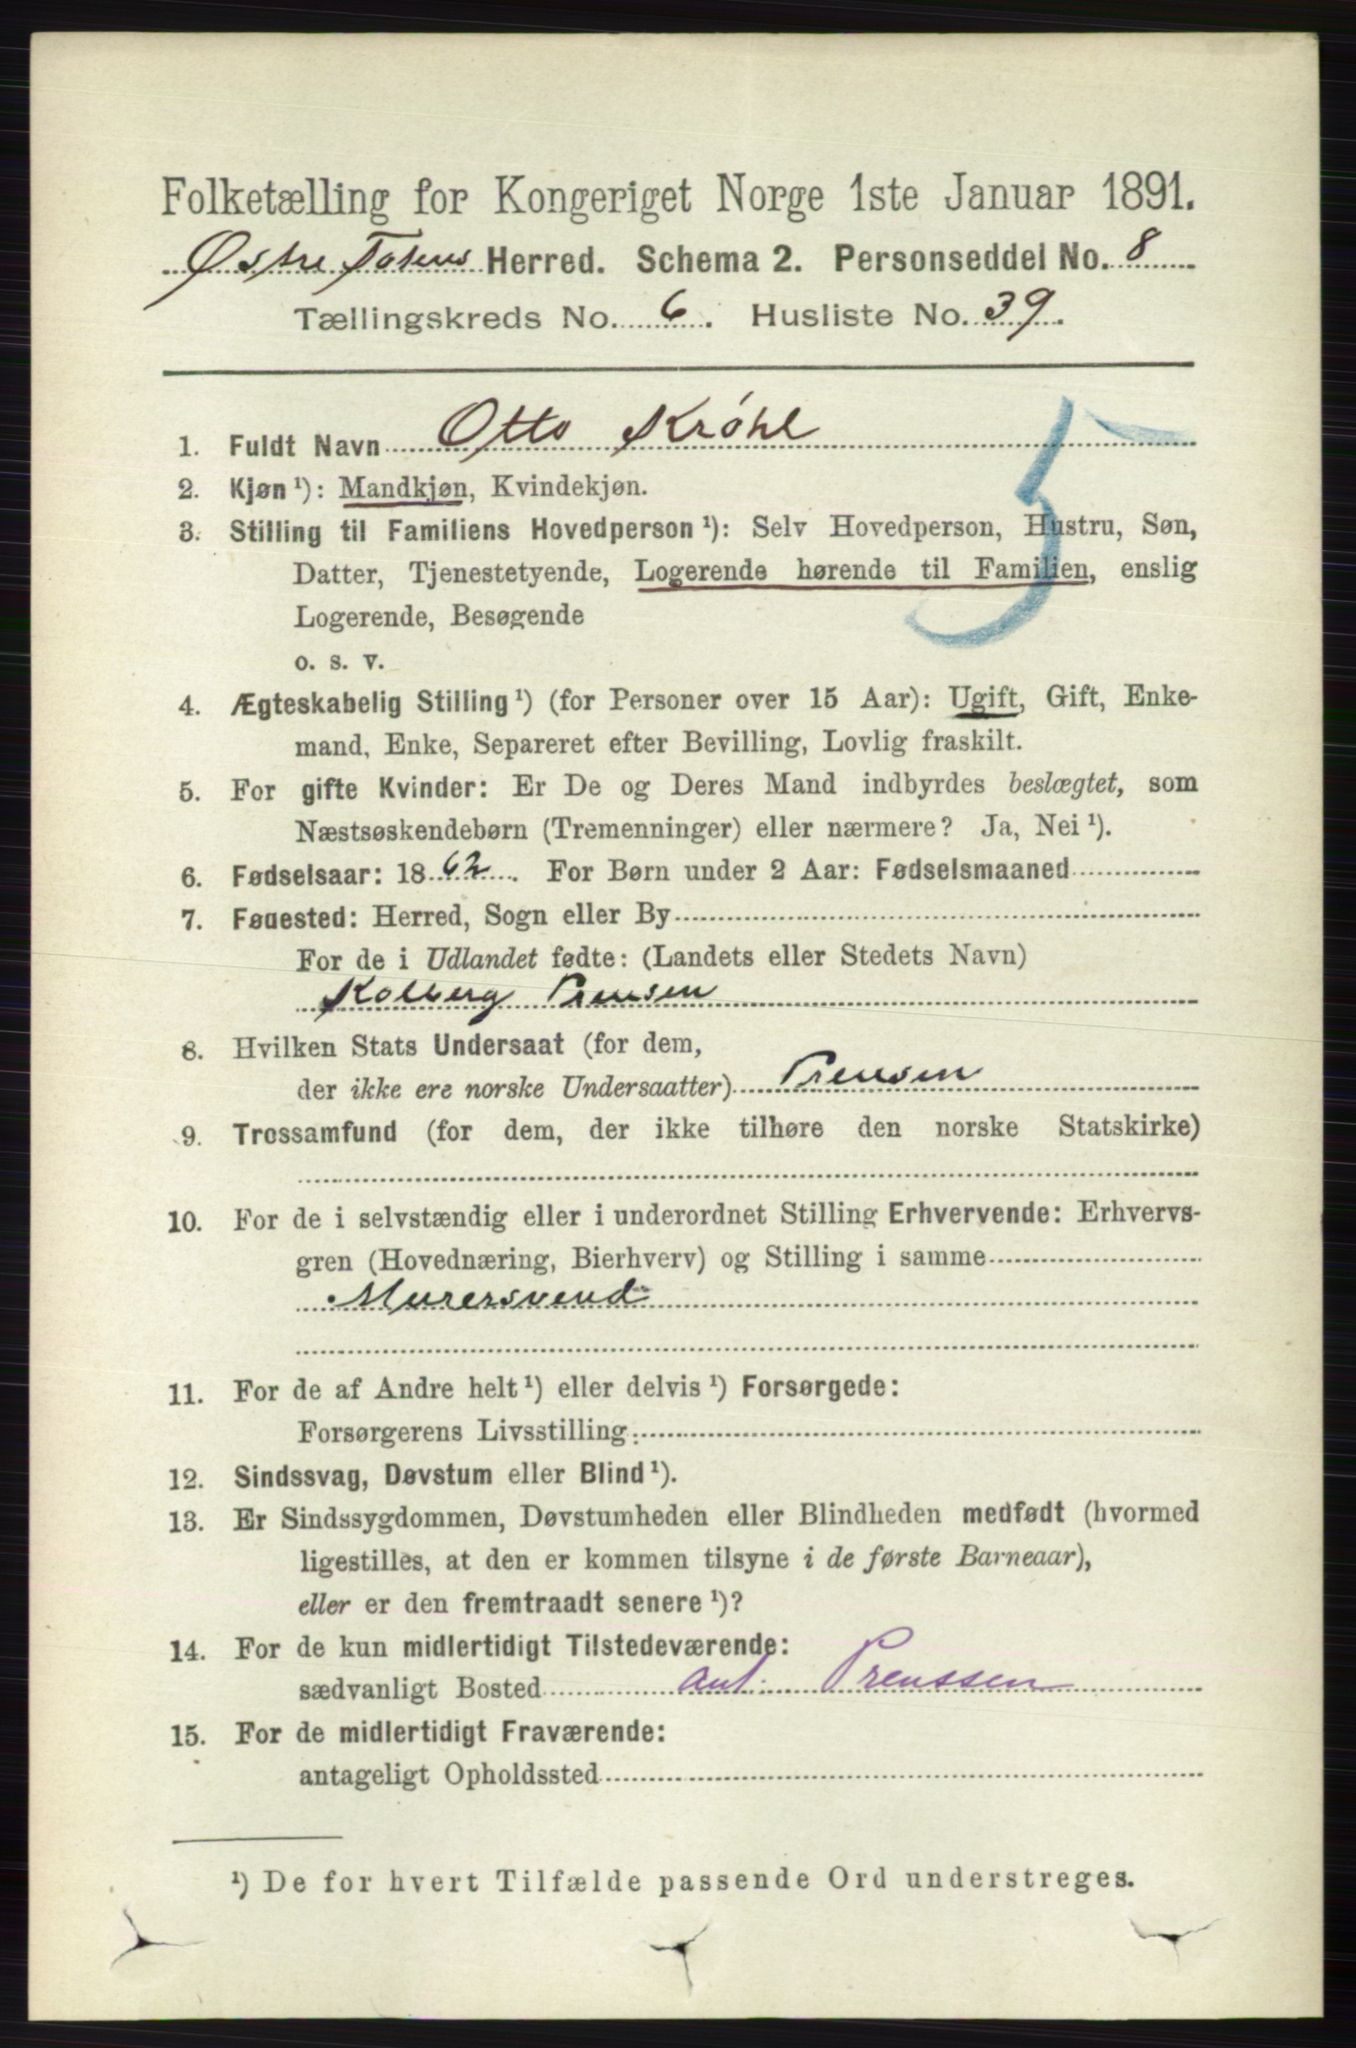 Folketælling for Kongeriget Norge 1ste Januar 1891.
Østre Totens Herred. Schema 2. Personseddel No. 8
Tællingskreds No. 6. Husliste No. 39.
1. Fuldt Navn Otto Krøhl
5
2. Kjøn ¹): Mandkjøn, Kvindekjøn.
3. Stilling til Familiens Hovedperson ¹): Selv Hovedperson, Hustru, Søn,
Datter, Tjenestetyende, Logerende hørende til Familien, enslig
Logerende, Besøgende
o. s. v.
4. Ægteskabelig Stilling ¹) (for Personer over 15 Aar): Ugift, Gift, Enke-
mand, Enke, Separeret efter Bevilling, Lovlig fraskilt.
5. For gifte Kvinder: Er De og Deres Mand indbyrdes beslægtet, som
Næstsøskendebørn (Tremenninger) eller nærmere? Ja, Nei ¹).
6. Fødselsaar: 1862. For Børn under 2 Aar: Fødselsmaaned
7. Fødested: Herred, Sogn eller By
For de i Udlandet fødte: (Landets eller Stedets Navn)
Kolberg Preusen
8. Hvilken Stats Undersaat (for dem,
der ikke ere norske Undersaatter) Preusen
9. Trossamfund (for dem, der ikke tilhøre den norske Statskirke)
10. For de i selvstændig eller i underordnet Stilling Erhvervende: Erhvervs-
gren (Hovednæring, Bierhverv) og Stilling i samme
Murersvend
11. For de af Andre helt ¹) eller delvis ¹) Forsørgede:
Forsørgerens Livsstilling:
12. Sindssvag, Døvstum eller Blind ¹).
13. Er Sindssygdommen, Døvstumheden eller Blindheden medfødt (hvormed
ligestilles, at den er kommen tilsyne i de første Barneaar),
eller er den fremtraadt senere ¹)?
14. For de kun midlertidigt Tilstedeværende:
sædvanligt Bosted ant. Preussen
15. For de midlertidigt Fraværende:
antageligt Opholdssted
¹) De for hvert Tilfælde passende Ord understreges.